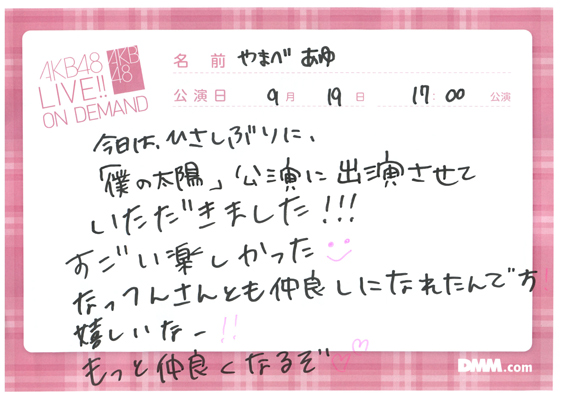 AKB48
LIVE!!
ON DEMAND
AKB
48
名 前 やまべ あゆ
公演日 9月 19日 17:00 公演
今日は、ひさしぶりに、
「僕の太陽」公演に出演させて
いただきました!!!
すごい楽しかった
なっつんさんとも仲良しになれたんです!
嬉しいなー!!
もっと仲良くなるぞ♡♡
DMM.com